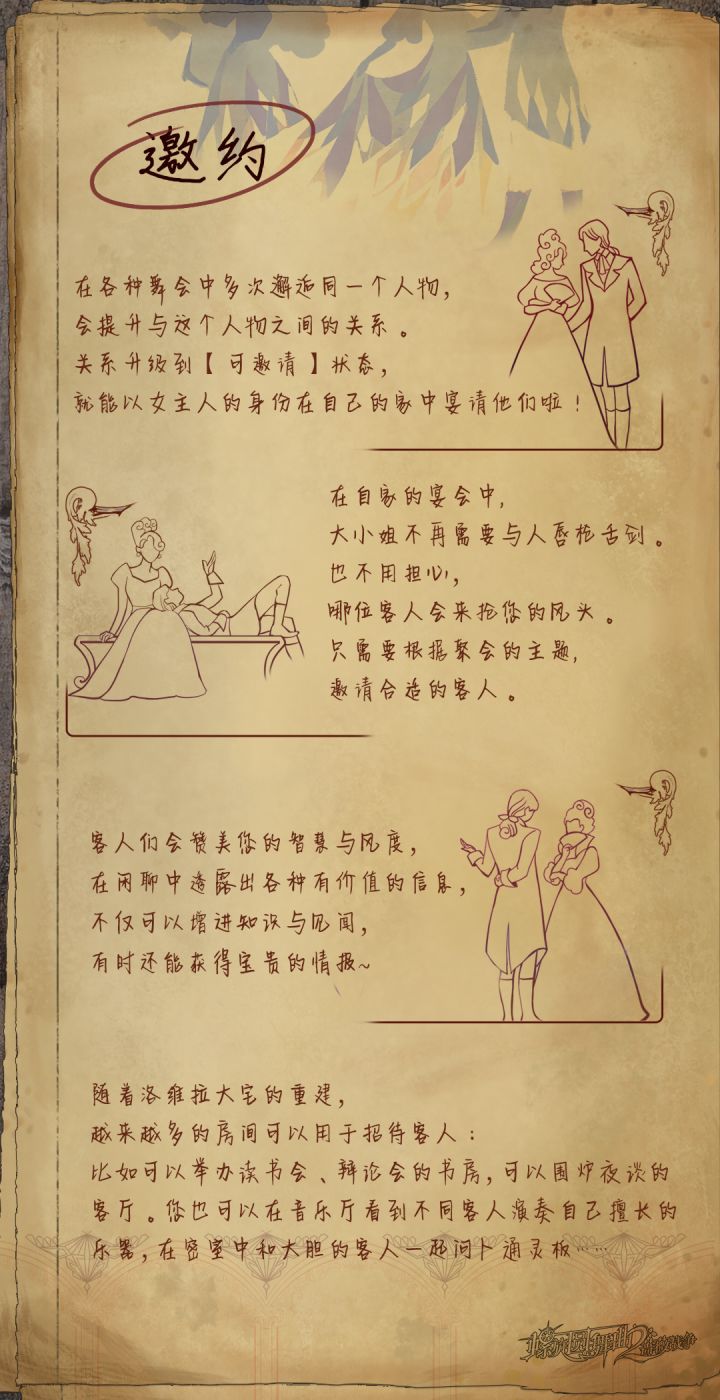 邀约
在各种舞会中多次邂逅同一个人物，
会提升与这个人物之间的关系。
关系升级到【可邀请】状态，
就能以女主人的身份在自己的家中宴请他们啦！
在自家的宴会中，
大小姐不再需要与人唇枪舌剑。
也不用担心，
哪位客人会来抢您的风头。
只需要根据聚会的主题，
邀请合适的客人。
客人们会赞美您的智慧与风度，
在闲聊中透露出各种有价值的信息，
不仅可以增进知识与见闻，
有时还能获得宝贵的情报~
随着洛维拉大宅的重建，
越来越多的房间可以用于招待客人：
比如可以举办读书会、辩论会的书房，可以围炉夜谈的
客厅。您也可以在音乐厅看到不同客人演奏自己擅长的
乐器，在密室中和大胆的客人一起问卜通灵板……
螺旋圆舞曲2